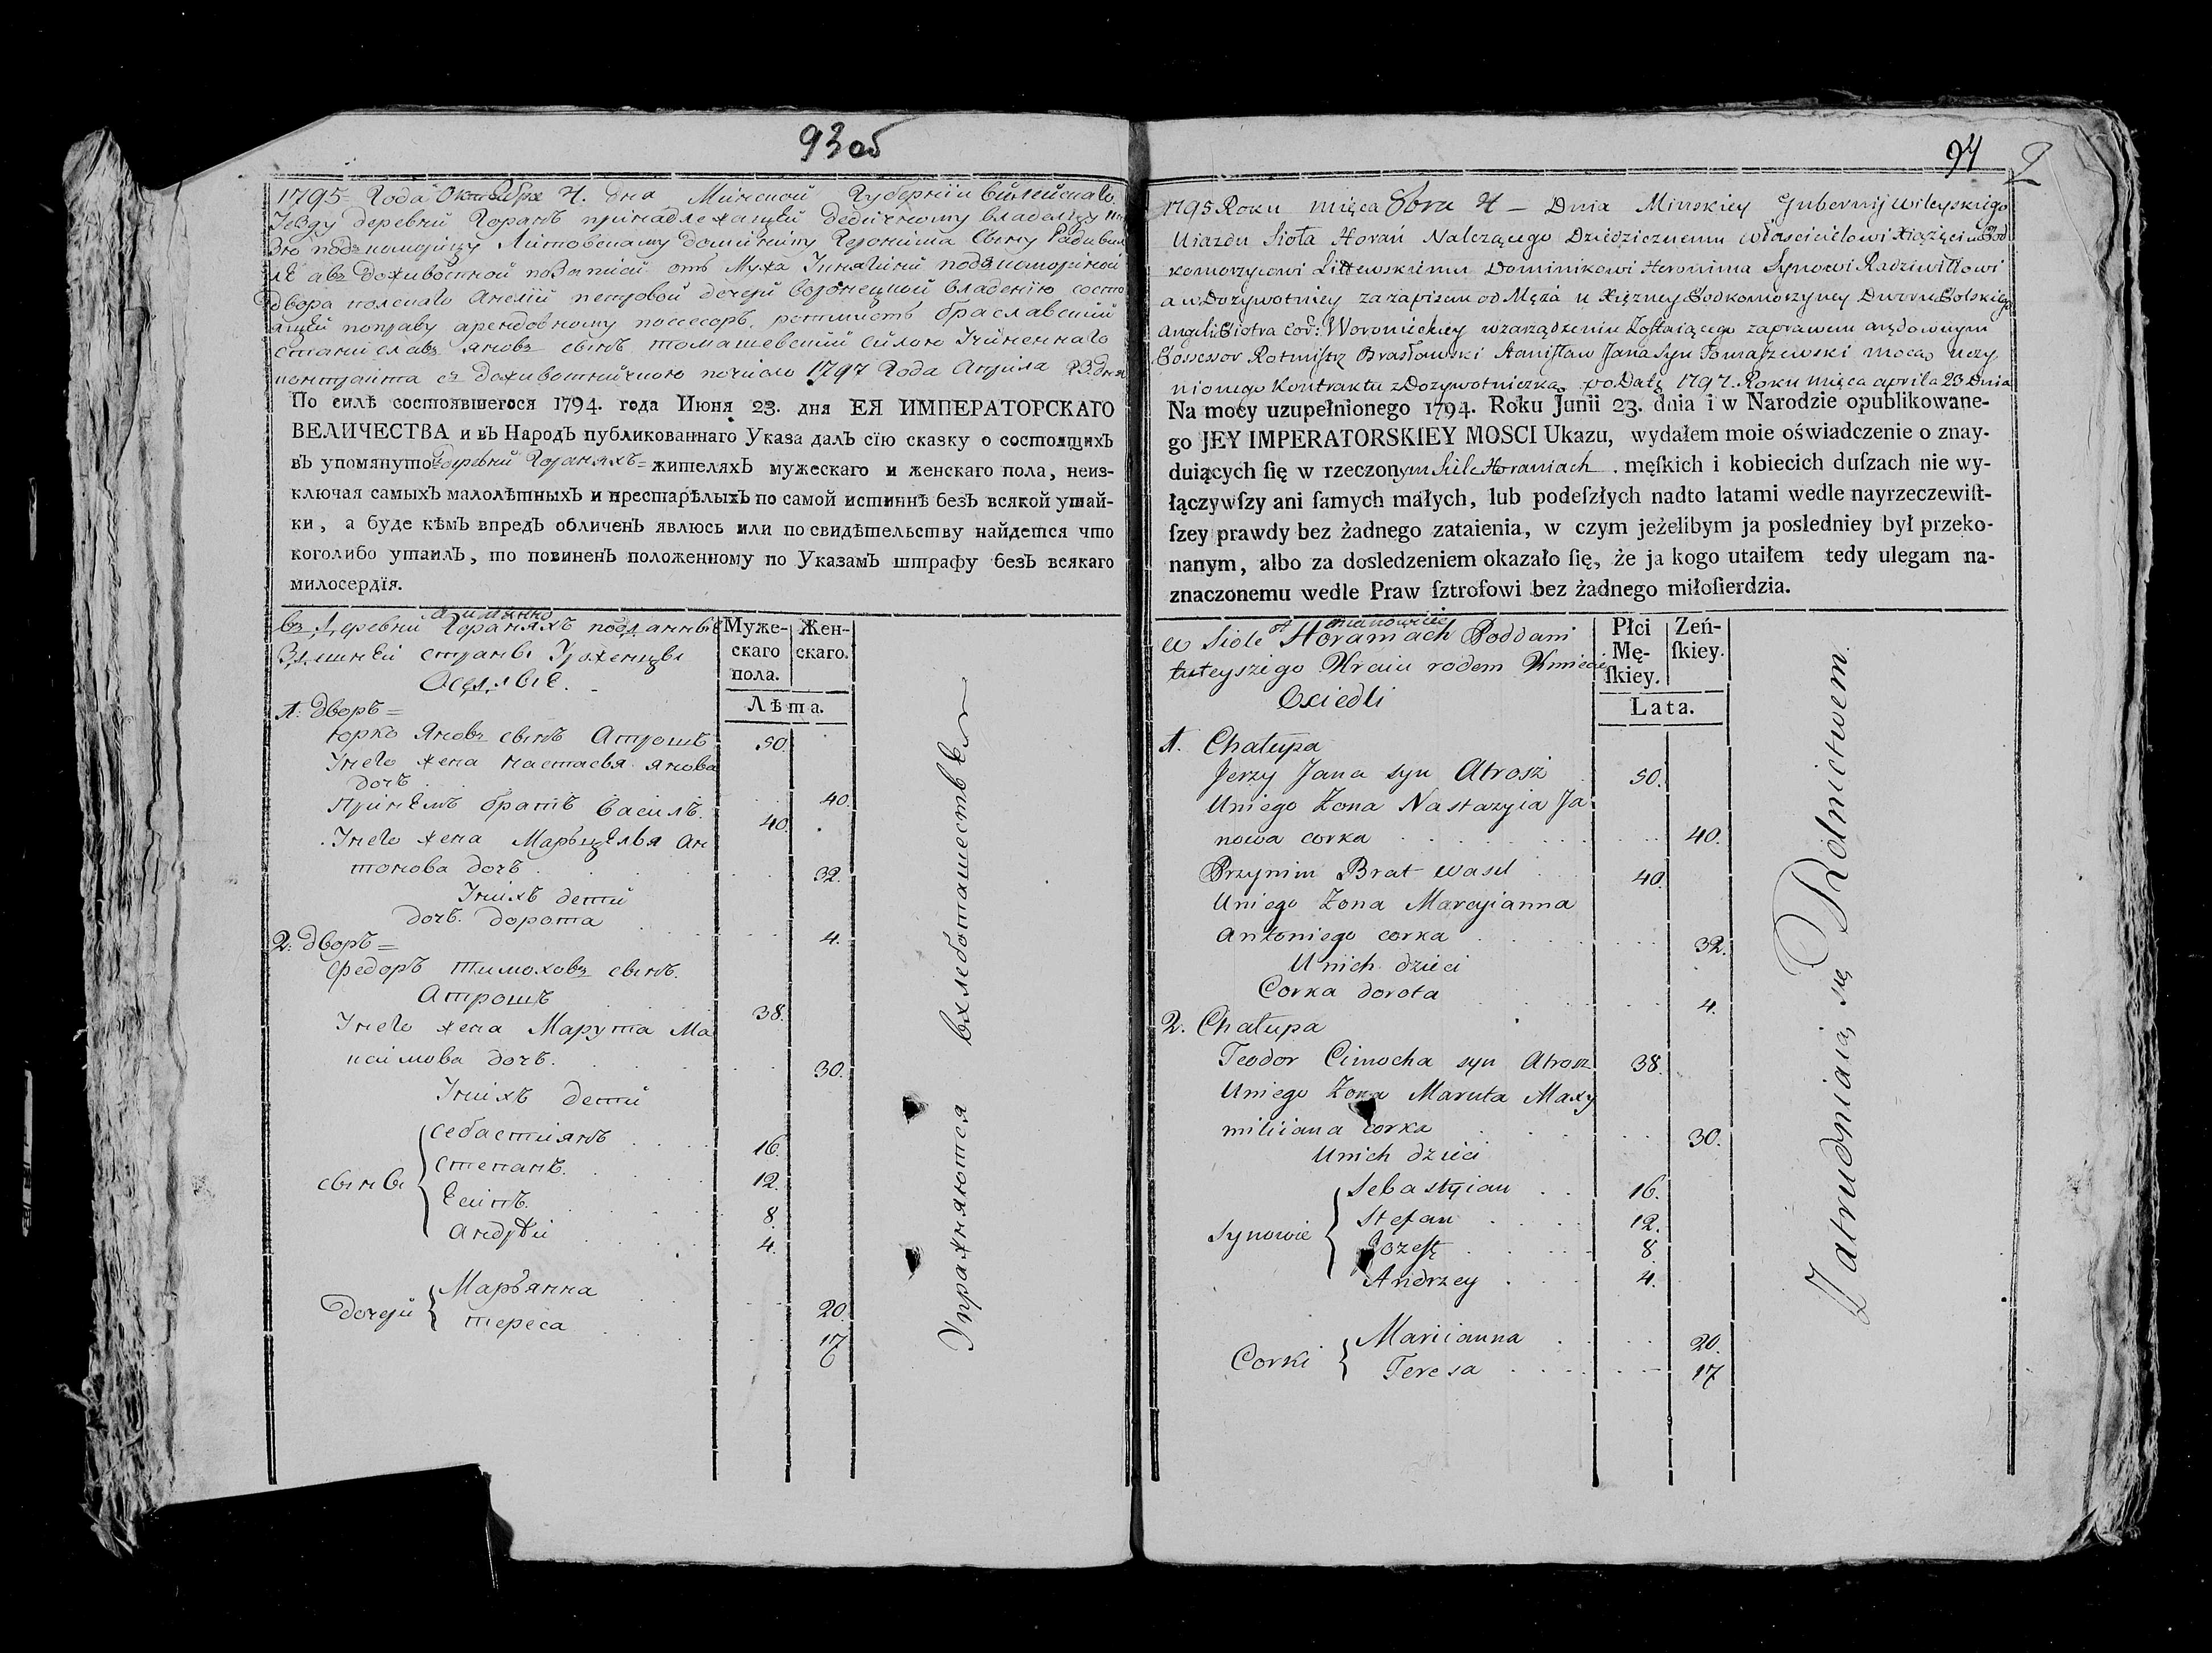 93 об
1795 Года Октября 4. дня Минской Губернiи Вилейскаго
Уезду деревни Горанъ принадлежащей дедичному владелцу
подкоморицу Литовскому доминику Геронима Сыну Радивил
ле а въ доживотной по записи отъ Мужа У подкомориной
двора полскаго Анелiи петровой дочери воронецкой владенiю состо
ящей по праву арендовному посесоръ ротмистъ браславский
станиславъ яновъ сынъ томашевский силою Учиненнаго
контракта съ доживотничкою по число 1797 Года Априла 23. дня
По силѣ состоявшегося 1794. года Июня 23. дня ЕЯ ИМПЕРАТОРСКАГО
ВЕЛИЧЕСТВА и въ Народъ публикованнаго Указа далъ сiю сказку о состоящихъ
въ упомянутой деревни Гораняхъ = жителяхъ мужескаго и женскаго пола, неиз-
ключая самыхъ малолѣтныхъ и престарѣлыхъ по самой истиннѣ безъ всякой утай-
ки, а буде кѣмъ впредъ обличенъ явлюсь или по свидѣтельству найдется что
коголибо утаилъ, то повиненъ положенному по Указамъ штрафу безъ всякаго
милосердiя.
а имянно
въ Деревни Гораняхъ подданные
Здешней страны Уроженцы
Оседлые.
Муже-
скаго
пола.
Жен-
скаго.
Лѣта.
1. дворъ =
юрко Яновъ сынъ Атрошъ 50
Унего жена настасья янова
дочъ 40.
Принемъ братъ василъ. 40.
Унего жена Марьцелья Ан
тонова дочъ 32.
Унихъ дети
дочъ. дорота 4.
2. дворъ =
федоръ тимоховъ сынъ.
Атрошъ 38.
Унего жена Марута Ма
ксимова дочъ. 30.
Унихъ дети
сыны { себастиянъ 16.
степанъ. 12.
Есипъ. 8.
андрей 4.
дочери { Марьянна 20.
тереса 17
Упражняются вхлебопашестве
94
2
1795 Roku mięca 8bra 4 – Dnia Minskiey Gubernij Wileyskiego
Uiazdu Sioła Horań Nalezącego Dziedzicznemu właścicielowi Xiążęciu Pod
komorzycowi Littewskiemu Dominikowi Heronima Synowi Radziwiłłowi
a w Dozywotniey za zapisem od Męża u Xiężney Podkomorzyney Dworu Polskiego
Angeli Piotra Cor: Woronieckiey w zarządzeniu Zostaiącego za prawem arędownym
Possessor Rotmistrz Brasławski Stanisław Jana Syn Tomaszewski mocą uczy
nionego Kontraktu z Dozywotniczką po Datę 1797. Roku mięca aprila 23 Dnia
Na mocy uzupełnionego 1794. Roku Junii 23. dnia i w Narodzie opublikowane-
go JEY IMPERATORSKIEY MOSCI Ukazu, wydałem moie oświadczenie o znay-
duiących ſię w rzeczonym Siele Horaniach. męſkich i kobiecich duſzach nie wy-
łączywſzy ani ſamych małych, lub podeſzłych nadto latami wedle nayrzeczewiſt-
ſzey prawdy bez żadnego zataienia, w czym jeżelibym ja posledniey był przeko-
nanym, albo za dosledzeniem okazało ſię, że ja kogo utaiłem tedy ulegam na-
znaczonemu wedle Praw ſztrofowi bez żadnego miłoſierdzia.
a mianowicie
w Siole Horaniach Poddani
tuteyszego Kraiu rodem Kmiecie
Osiedli
Płci
Mę-
ſkiey.
Zeń-
ſkiey.
Lata.
1. Chałupa
Jerzy Jana syn Atrosz 50.
Uniego Żona Nastazyia Ja
nowa corka 40.
Przynim Brat wasil 40.
Uniego Żona Marcyianna
Antoniego corka 32.
Unich dzieci
Corka dorota 4.
2. Chałupa
Teodor Cimocha syn Atrosz 38.
Uniego Żona Maruta Maxy
miliiana corka 30.
Unich dzieci
Synowie { Sebastyian 16.
Stefan 12.
Jozeff 8
Andrzey 4.
Corki { Mariianna 20.
Teresa 17
Zatrudniaią się Rolnictwem.